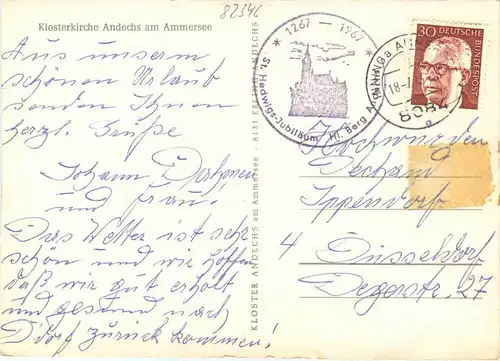 82340
Klosterkirche Andechs am Ammersee
Aus unserm
schönen Urlaub
senden Ihnen
herzl. Grüße
Johann
und Frau.
Das Wetter ist sehr
schön und wir hoffen
daß wir gut erholt
und gesund nach
Ddorf zurück kommen!
KLOSTER ANDECHS am Ammersee - 8131 ERLING-ANDECHS
* 1267 - 1967 *
St. Hedwigs-Jubiläum Hl. Berg Andechs
30 DEUTSCHE BUNDESPOST
Hochwürden
Dechant
Ippendorf
4 Düsseldorf
Degerstr. 27